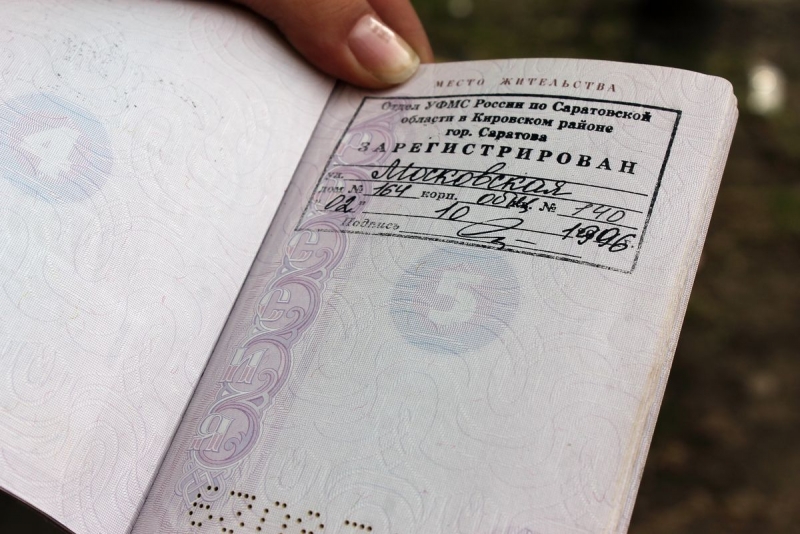 4
МЕСТО ЖИТЕЛЬСТВА
Отдел УФМС России по Саратовской
области в Кировском районе
гор. Саратова
ЗАРЕГИСТРИРОВАН
ул. Московская
дом № 164 корп. общ. кв. № 140
"02" 10 1996
Подпись
5